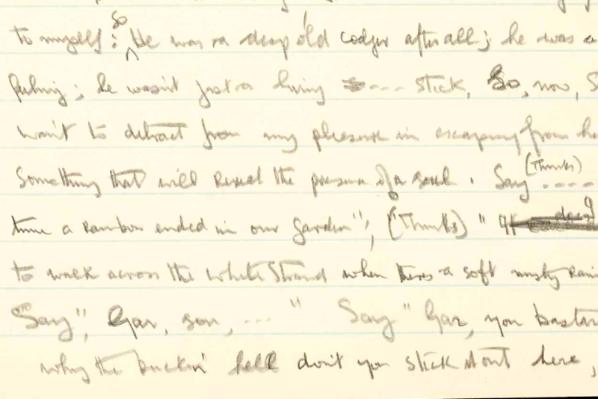 to myself: So he was a deep old codger after all; he was a
feeling; he wasn't just a living .... stick, So, now, S
want to detract from my pleasure in escaping from h
Something that will reveal the presence of a soul. Say (Thinks) ....
time a rainbow ended in our garden"; (Thinks) "
to walk across the White Strand when there's a soft misty rain
"Say", Gar, son, ...." Say "Gar, you bastar
why the buckin' hell don't you stick it out here,